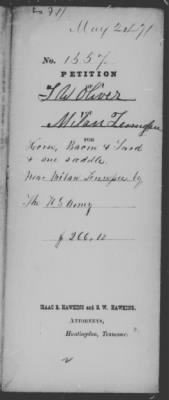 May 24 71
No. 1557
PETITION
T W Oliver
Milan Tennessee
FOR
Corn, Bacon & Lard
& one saddle
Near Milan Tennessee by
The U S Army
$266.10
ISAAC R. HAWKINS and S. W. HAWKINS,
ATTORNEYS,
Huntingdon, Tennessee.